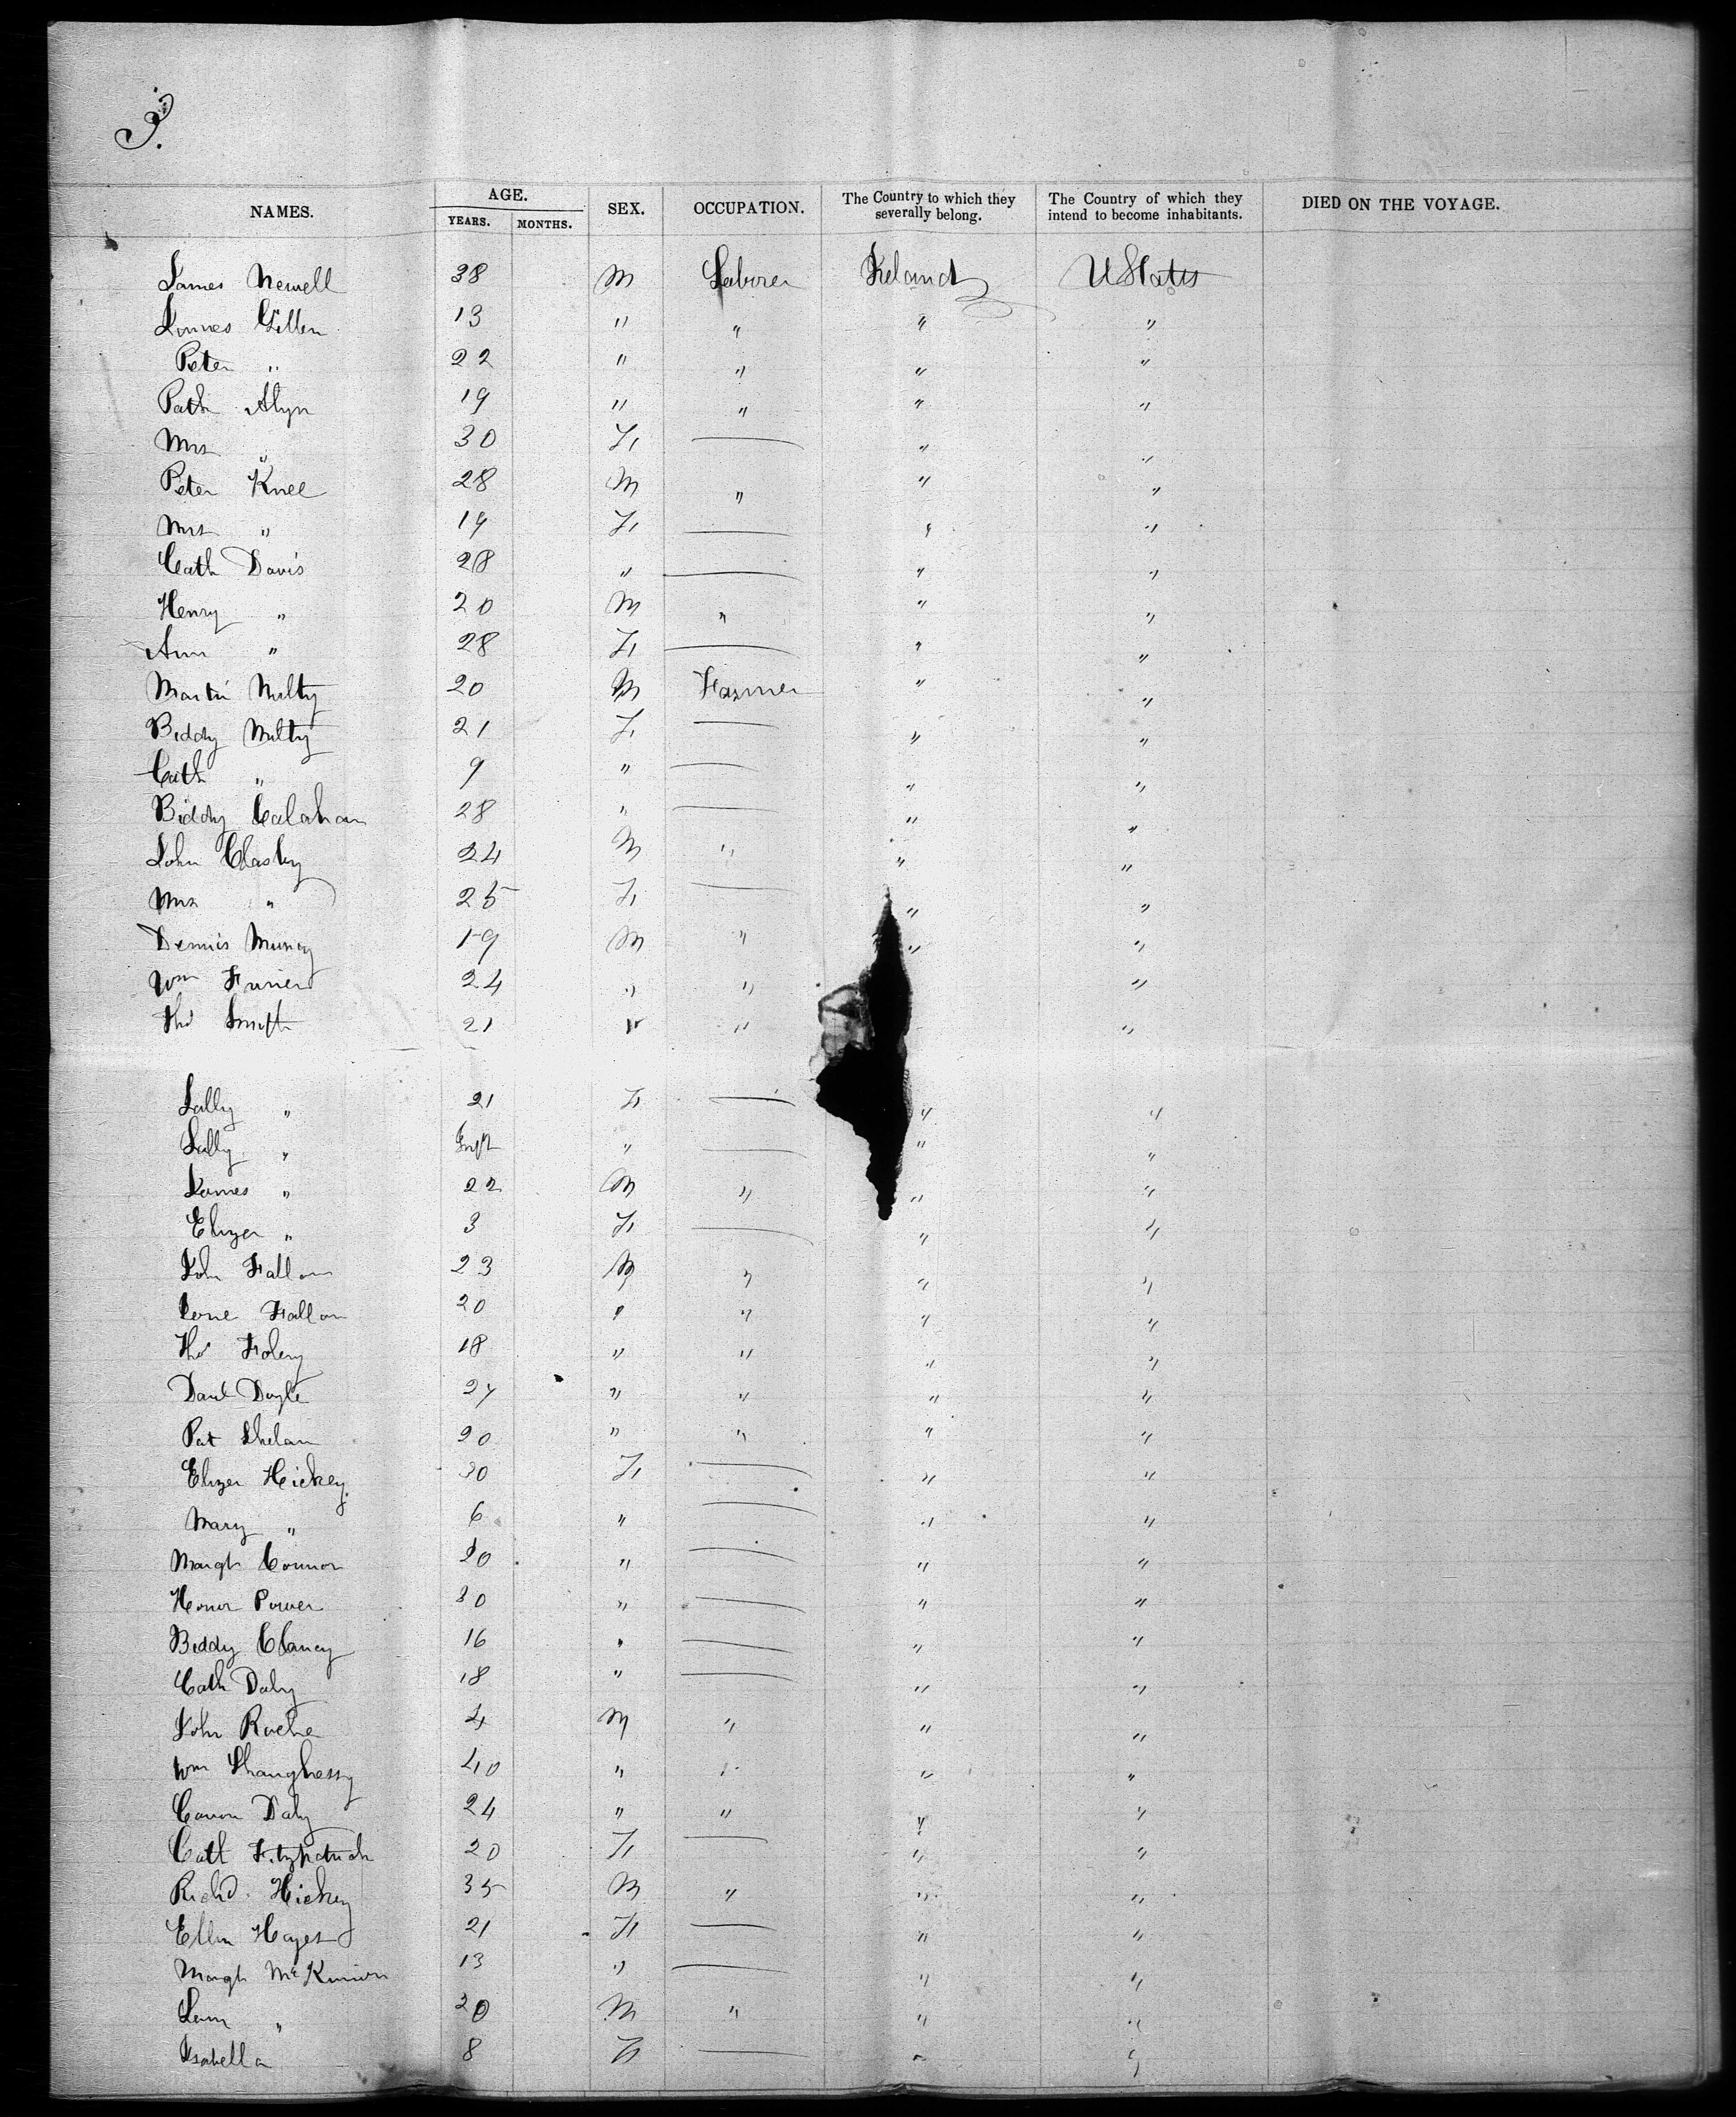 3.
NAMES. AGE. YEARS. MONTHS. SEX. OCCUPATION. The Country to which they severally belong. The Country of which they intend to become inhabitants. DIED ON THE VOYAGE.
James Newell 38 M Laborer Ireland U States
James Gillen 13 " " " "
Peter " 22 " " " "
Patk Alyn 19 " " " "
Mrs " 30 F — " "
Peter Knee 28 M " " "
Mrs " 19 F — " "
Cath Davis 28 " — " "
Henry " 20 M " " "
Ann " 28 F — " "
Martin Multy 20 M Farmer " "
Biddy Multy 21 F — " "
Cath " 9 " — " "
Biddy Calahan 28 " — " "
John Clasby 24 M " " "
Mrs " 25 F — " "
Dennis Murray 19 M " " "
Wm 24 " " "
Thos Smith 21 " " "
Sally " 21 F — " "
Sally " Inft " — " "
James " 22 M " " "
Elizer " 3 F — " "
John Fallon 23 M " " "
Fallon 20 " " " "
Thos Foley 18 " " " "
Danl Doyle 27 " " " "
Pat Shelan 20 " " " "
Elizer Hickey 30 F — " "
Mary " 6 " — " "
Margt Connor 20 " — " "
Honor Power 30 " — " "
Biddy Clancy 16 " — " "
Cath Daly 18 " — " "
John Roche 4 M " " "
Wm Shaughessy 40 " " " "
Daly 24 " " " "
Cath Fitzpatrick 20 F — " "
Richd. Hickey 35 M " " "
Ellen Hayes 21 F — " "
Margt McKinion 13 " — " "
" 20 M " " "
Isabella 8 F — " "